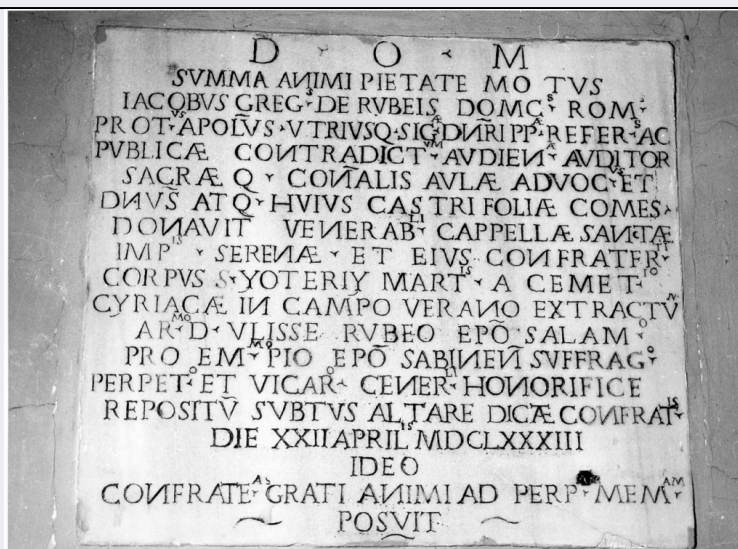 D · O · M
SVMMA ANIMI PIETATE MOTVS
IACOBVS GREG·ˢ DE RVBEIS DOMC·ˢ ROM·
PROT·ᵛˢ APOLV̄S · VTRIVSQ·SIG·Æ DN̄RI PP·Æ REFER·ˢ AC
PVBLICÆ CONTRADICT·ᵛᴹ AVDIEN·Æ AVDITOR
SACRÆ Q · CON̄ALIS AVLÆ ADVOC·ᵛˢ ET
DNVS̄ ATQ · HVIVS CASTRI FOLIÆ COMES·
DONAVIT VENERAB·ᴸᴵ CAPPELLÆ SANCTÆ
IMP·ᴵˢ · SERENÆ · ET EIVS CONFRATER·ᵀᴵ
CORPVS S·YOTERIY MART·ᴵˢ A CEMET·ᴵᴼ
CYRIACÆ IN CAMPO VERANO EXTRACTV̄
AR·ᴹᴼ D · VLISSE RVBEO EPŌ SALAM·ᴼ
PRO EM·ᴹᴼ PIO EPŌ SABINEN̄ SVFFRAG·ᴼ
PERPET·ᴼ ET VICAR·ᴼ GENER·ᴸᴵ HONORIFICE
REPOSITV̄ SVBTVS ALTARE DICÆ CONFRAT·ᴵˢ
DIE XXII APRIL·ᴵˢ MDCLXXXIII
IDEO
CONFRATE·ᴬˢ GRATI ANIMI AD PERP·ᴬᴹ MEM·ᴬᴹ
POSVIT